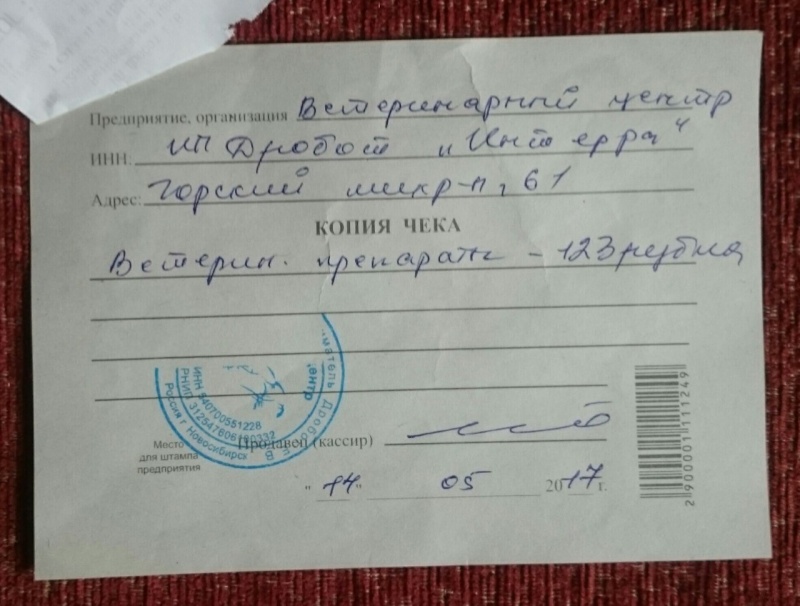 Предприятие, организация Ветеринарный центр
ИНН. ИП Дробот "Интерра"
Адрес: Горский микр-н, 61
КОПИЯ ЧЕКА
Ветерин. препараты - 123 рубля
ИНН 540700551228
Россия г Новосибирск
Место
для штампа
предприятия
Продавец (кассир)
" 14 " 05 2017 г.
2900001111249